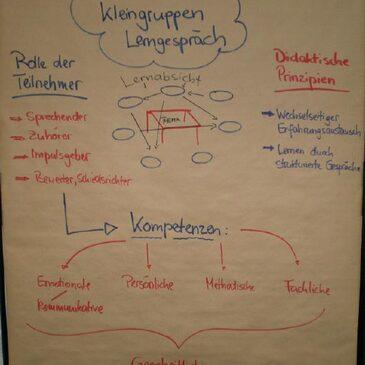 Kleingruppen
Lerngespräch
Rolle der
Teilnehmer
Lernabsicht
Didaktische
Prinzipien
→ Sprechender
→ Zuhörer
→ Impulsgeber
→ Bewerter, Schiedsrichter
THEMA
→ Wechselseitiger
Erfahrungsaustausch
→ Lernen durch
strukturierte Gespräche
Kompetenzen:
Emotionale
Kommunikative
Persönliche
Methodische
Fachliche